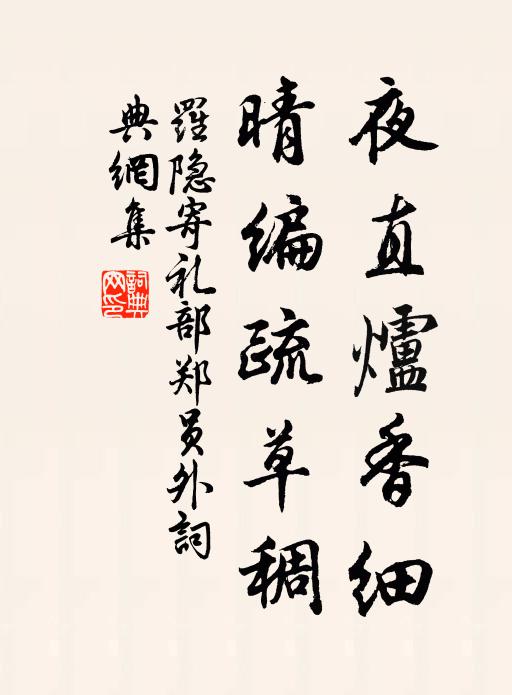 夜直爐香细
晴编疏草稠
羅隐寄礼部郑员外詞
典網集
詞典网印